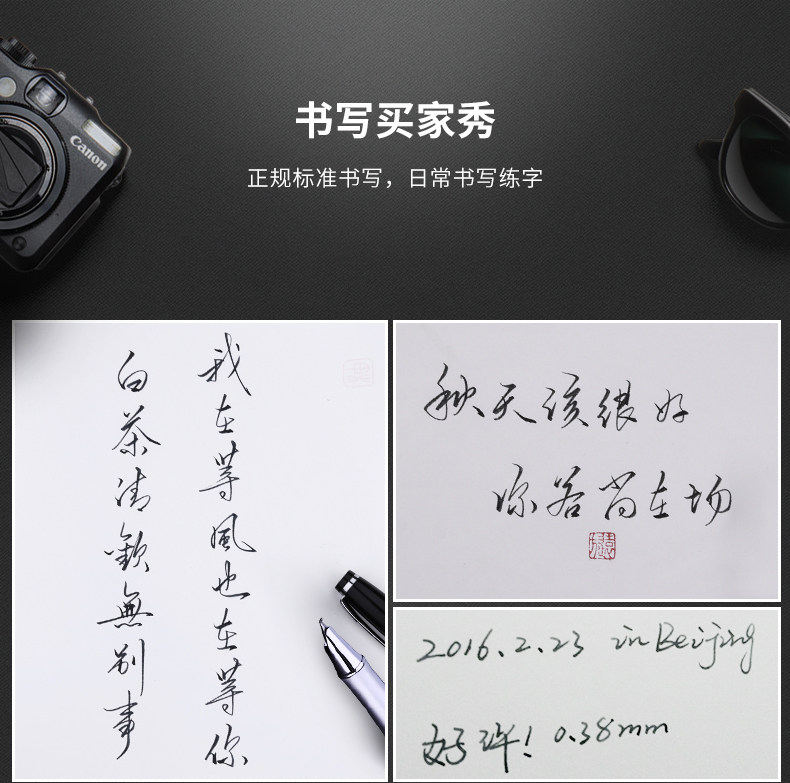 Canon
书写买家秀
正规标准书写，日常书写练字
我在等風也在等你
白茶清歡無别事
秋天该很好
你若尚在场
2016.2.23 in Beijing
好评！0.38mm